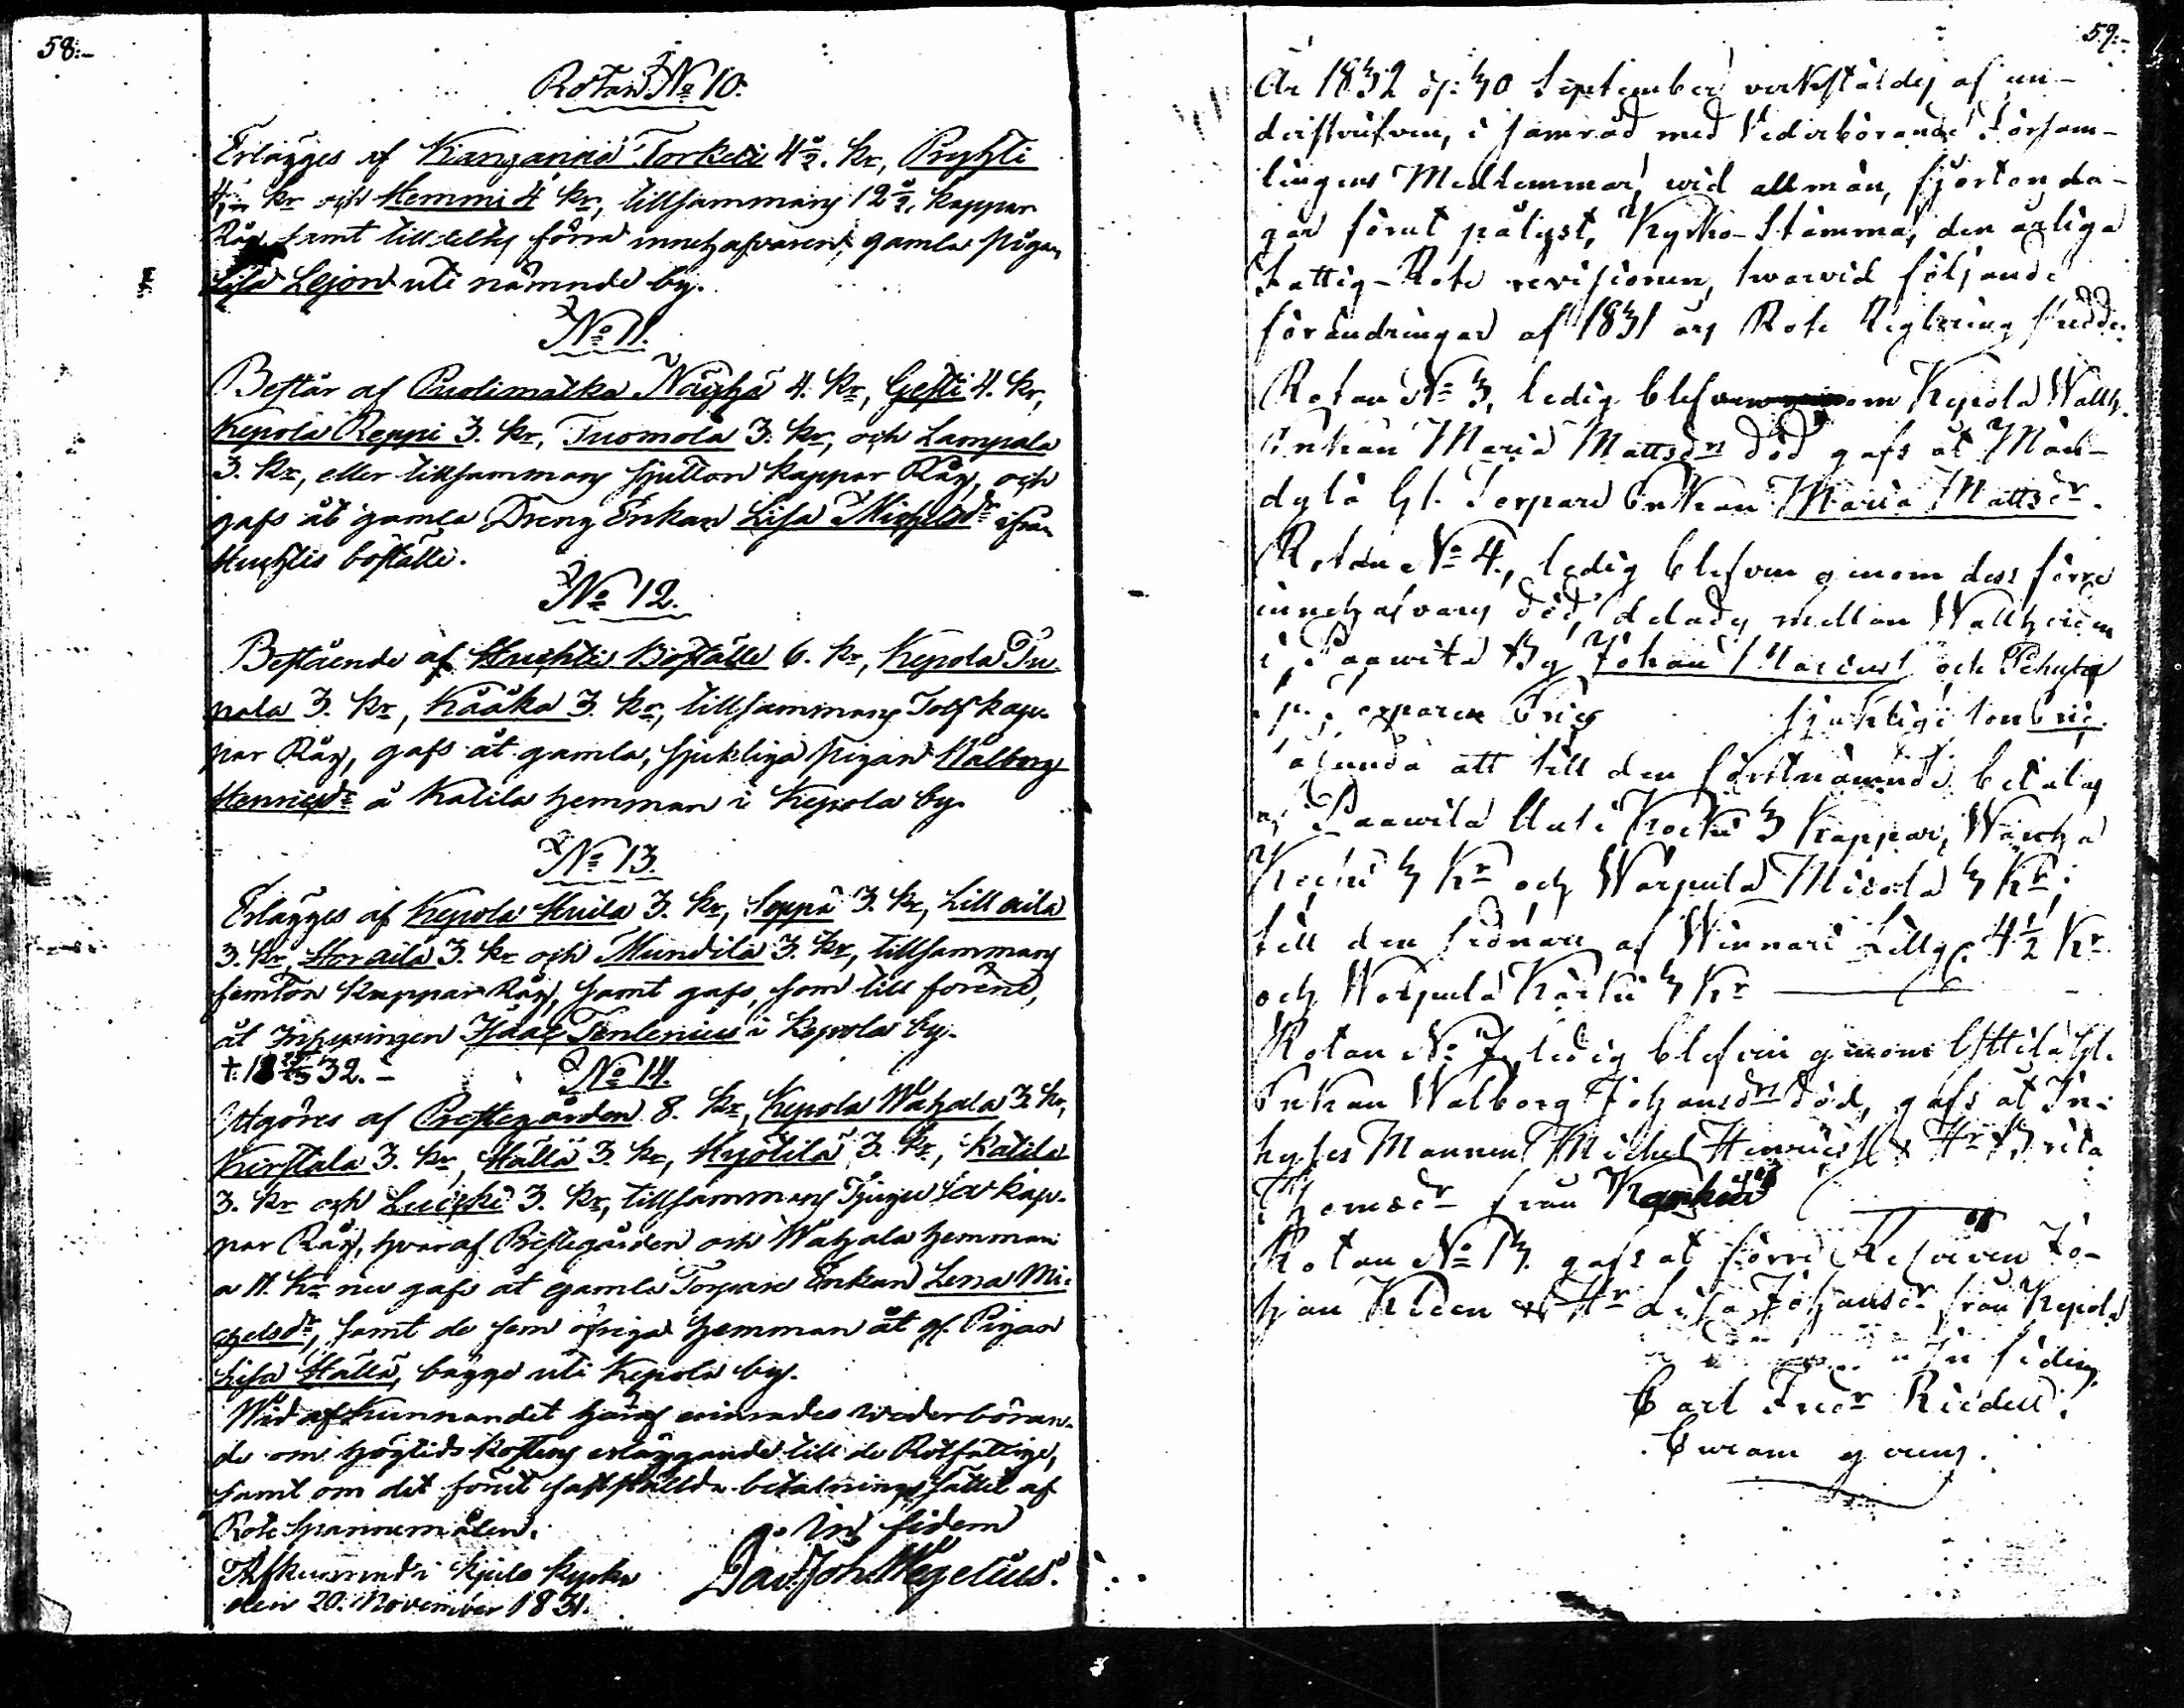 58.
Rotan No 10.
Erlägges af Kiangannä Torkeli 4½. kr, Pryhti
4 kr och Hemmi 4 kr, tillsammans 12½, kappar
Råg samt tilldeltes förra innehafvaren, gamla pigan
Lisa Lejon uti nämnde by.
No 11.
Består af Puolimatka Näyhä 4. kr, Gesti 4. kr,
Kepola Reppi 3. kr, Tuomola 3. kr, och Lampala
3. kr, eller tillsammans sjutton kappar Råg, och
gafs åt gamla Dreng Enkan Lisa Michelsdr ifrån
Huhtis boställe.
No 12.
Bestående af Huhtis Boställe 6. kr, Kepola Tu-
pala 3. kr, Kååka 3. kr, tillsammans Tolf kap-
par Råg, gafs åt gamla, sjukliga pigan Walborg
Henricsdr å Katila hemman i Kepola by.
No 13.
Erlägges af Kepola Huila 3. kr, Seppä 3. kr, Lill aila
3. kr, Stor aila 3. kr och Mundila 3. kr, tillsammans
femton Kappar Råg, samt gafs, som till förene,
åt Inhysingen Isaac Tenlenius i Kepola by.
†. 32.
No 14.
Utgöres af Prestegården 8. kr, Kepola Wähälä 3. kr,
Kirstala 3. kr, Hällä 3. kr, Hyötilä 3. kr, Katila
3. kr och Lucski 3. kr, tillsammans Tjugu sex kap-
par Råg, hvaraf Prestegården och Wähälä hemman
a 11. kr nu gafs åt gamla Torpare Enkan Lena Mi-
chelsdr, samt de fem öfriga hemman åt gl. Pigan
Lisa Hällä, bägge uti Kepola by.
Wid afkunnandet häraf erinrades wederböran-
de om högtids kostens erläggande till de Rotfattige,
samt om det förut fastställda betalningssättet af
Rote Spannemålen.
In fidem
Afkunnad i Kjulo kyrka
Dav: Joh: Wegelius.
den 20. November 1831.
59.
År 1832 d: 30 September verkstäldes af un-
derskrifven, i samråd med Vederbörande Försam-
lingens Medlemmar, wid allmän, fjorton da-
gar förut pålyst, Kyrko-Stämma, den årliga
Fattig-Rote revisionen, hwarvid följande
förändringar af 1831 års Rote Reglering skedde.
Rotan No 3, ledig blefven genom Kepola Wallh.
Enkan Maria Mattsdrs död gafs åt Män-
dylä gl. Torpare Enkan Maria Mattsdr.
Rotan No 4., ledig blefven genom dess förre
innehafvares död, delades mellan Wallheiden
i Paawila By Johan Marcus och
Torparen Erics sjuklige son Eric.
sålunda att till den förstnämnde betalas
af Paawila Uuti Kocki 3 Kappar, Wanha
Kocki 3 Kr och Warpula Micola 3 Kr;
till den sednare af Winnari Lillg: 4½ Kr
och Warpula Karku 3 Kr
Rotan No 7, ledig blefven genom Uttila gl.
Enkan Walborg Johansdrs död, gafs åt In-
hyses Mannen Michel Henricss. & Hr Brita
Thomsdr från
Rotan No 13. gafs åt förre Reserven Jo-
han Kiden & Hr Lisa Johansdr från Kepola
In fidem
Carl Fredr Riidell.
Curam gerens.